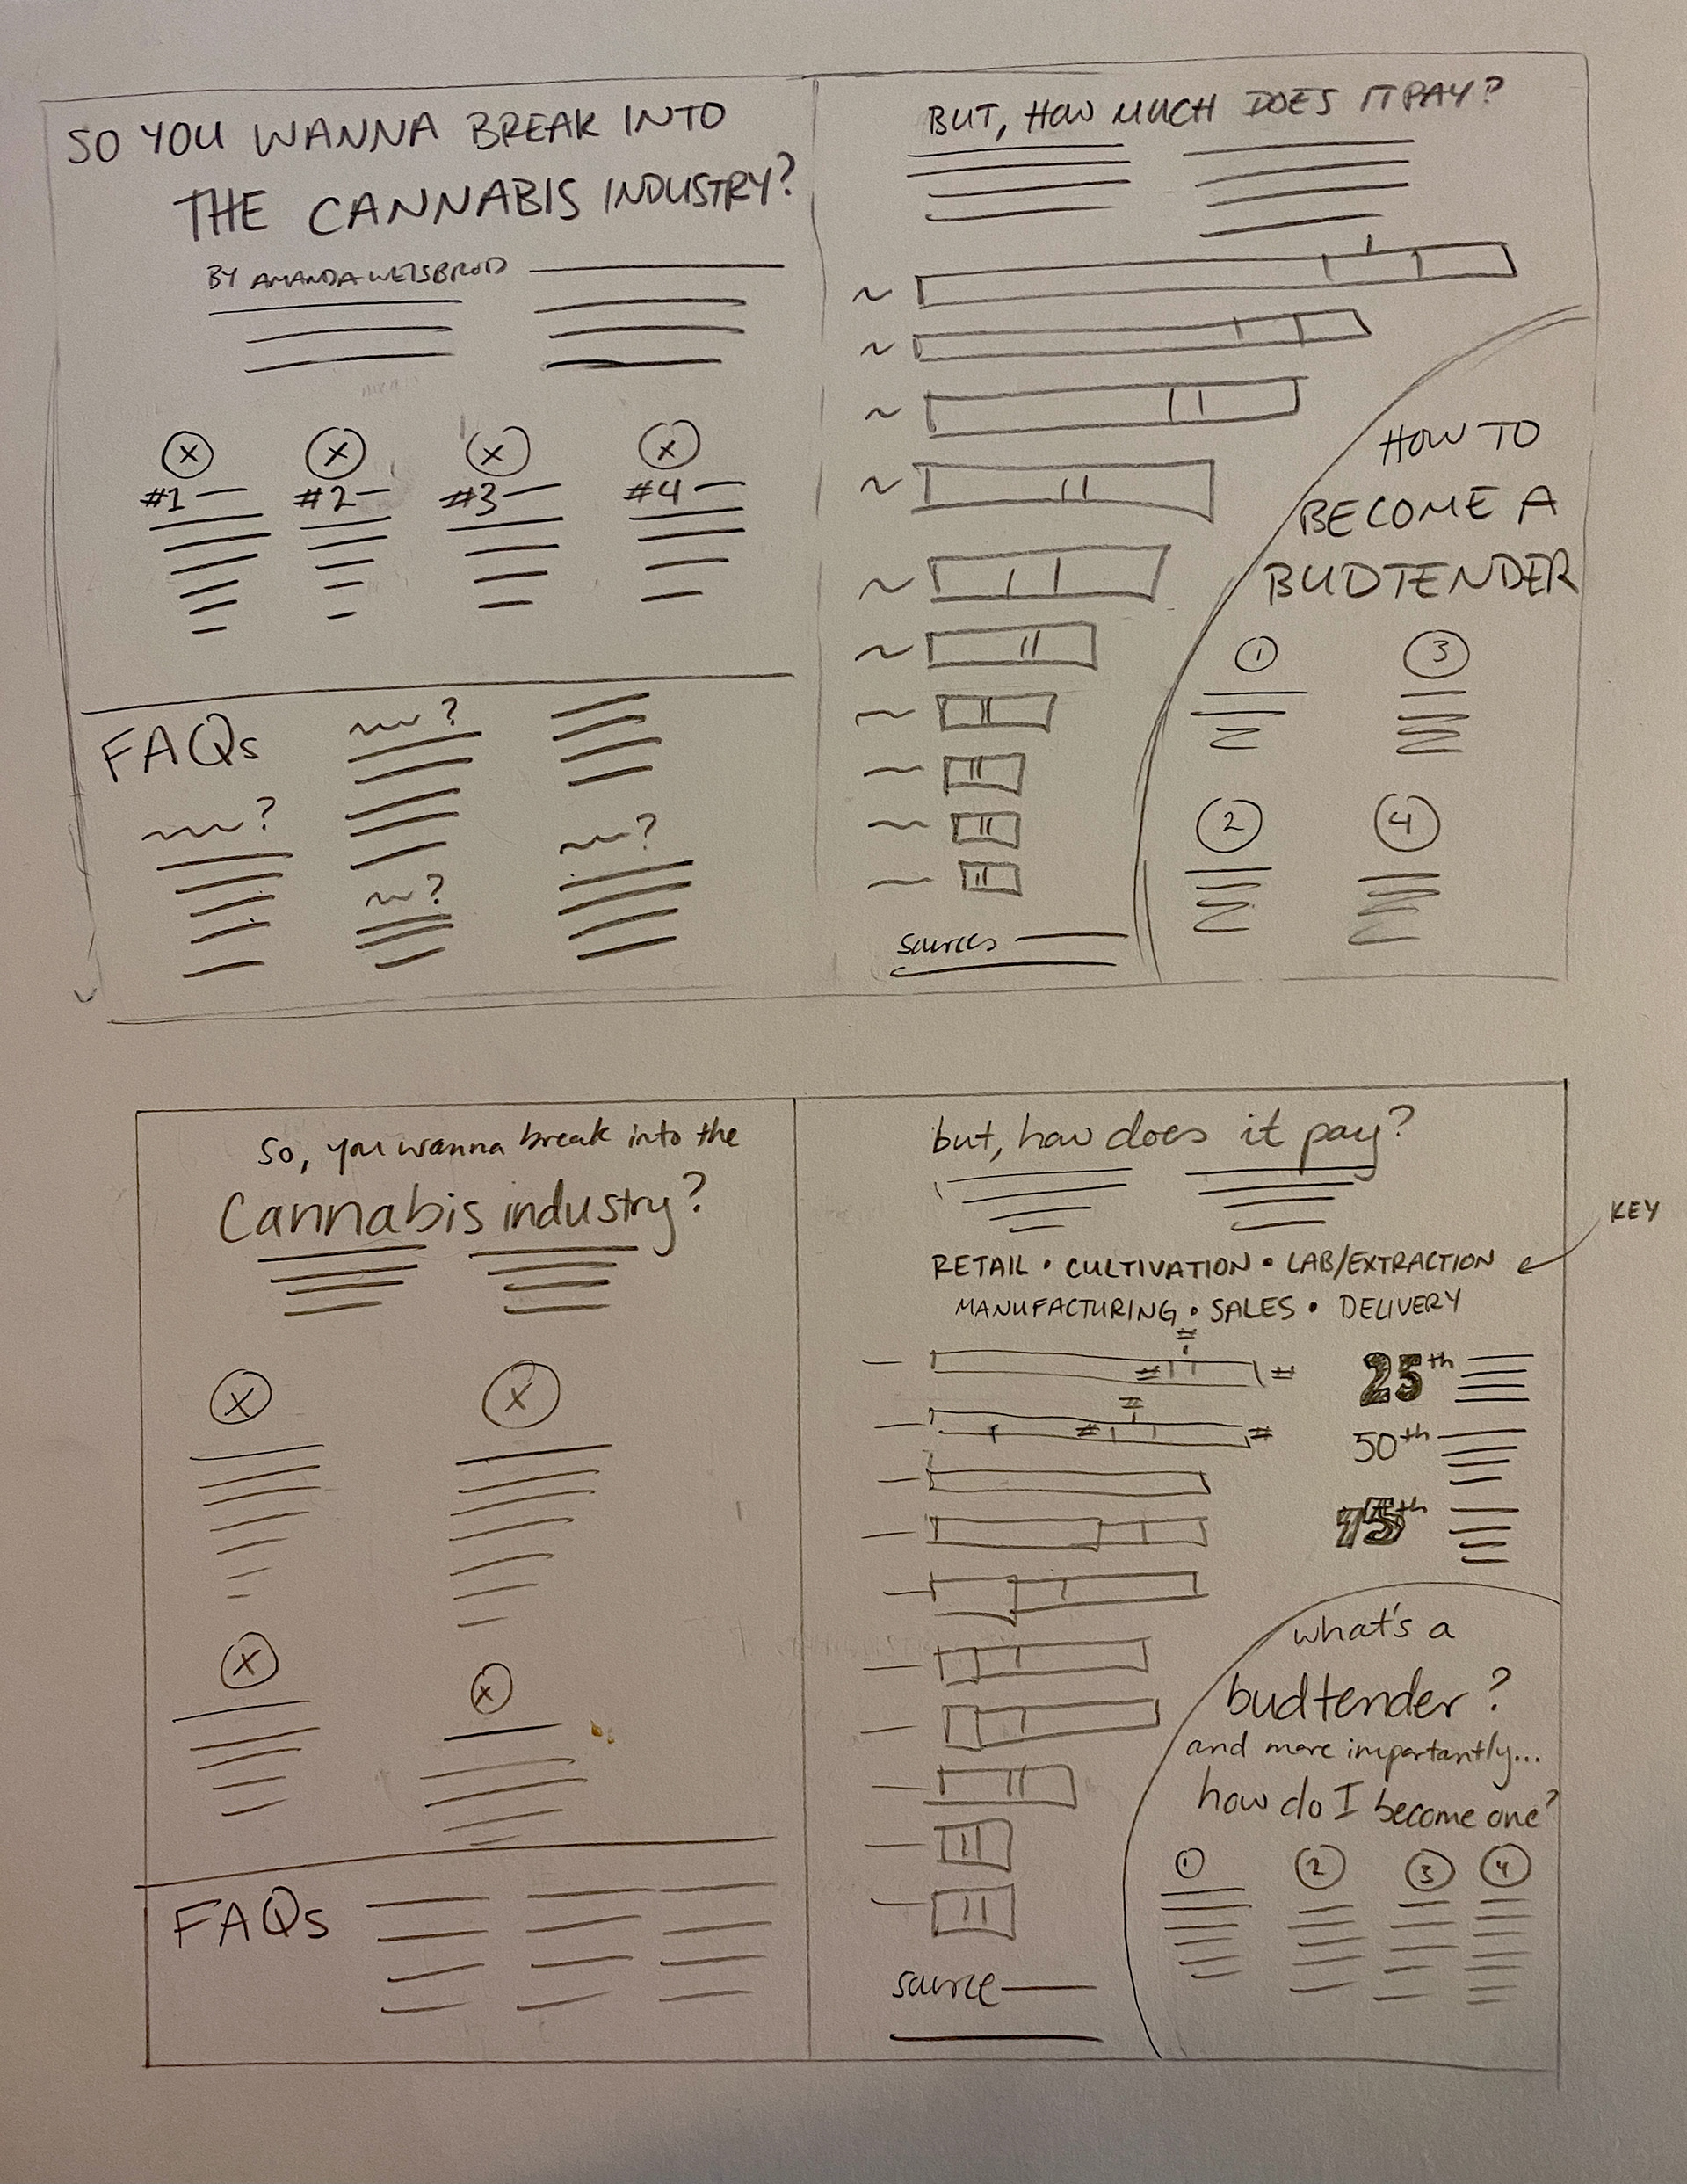 SO YOU WANNA BREAK INTO
THE CANNABIS INDUSTRY?
BY AMANDA WEISBROD
#1
#2
#3
#4
FAQs
?
?
?
?
BUT, HOW MUCH DOES IT PAY?
HOW TO
BECOME A
BUDTENDER
1
3
2
4
sources
So, you wanna break into the
Cannabis industry?
FAQs
but, how does it pay?
KEY
RETAIL • CULTIVATION • LAB/EXTRACTION
MANUFACTURING • SALES • DELIVERY
25th
50th
75th
what's a
budtender?
and more importantly...
how do I become one?
1
2
3
4
source